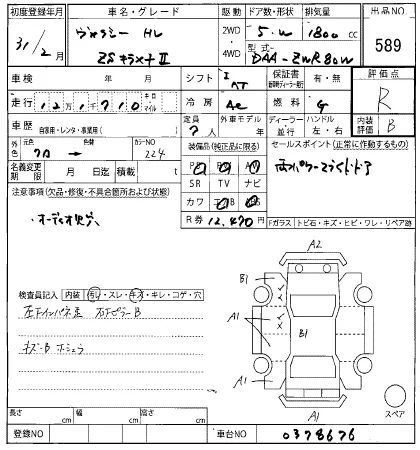 初度登録年月 車名・グレード 駆動 ドア数・形状 排気量 出品NO.
31/2月 ヴォクシー HV 2WD 4WD 5.W 1800cc 589
ZSキラメキⅡ 型式 DAA-ZWR80W
車検 年 月 シフト I AT 保証書 有・無 評価点
走行 121710 キロ マイル 冷房 AC 燃料 G R
車歴 自家用・レンタ・事業用( ) 定員 7人 外車モデル 年 ディーラー 並行 ハンドル 左・右 内装評価 B
外色 元色 クロ → 色替 カラーNO 224 装備品(純正品に限る) セールスポイント(正常に作動するもの)
名義変更期限 月 日迄 積載 t SR TV ナビ
注意事項(欠品・修復・不具合箇所および状態) カワ
オーディオ欠穴 R券 12,470円 Fガラス トビ石・キズ・ヒビ・ワレ・リペア跡
検査員記入 内装 汚れ・スレ・キズ・キレ・コゲ・穴
A2
B1
A1
B1
A1
A1
キズ・B
スペア
長さ cm 幅 cm 高さ cm
登録NO 車台NO 0378676